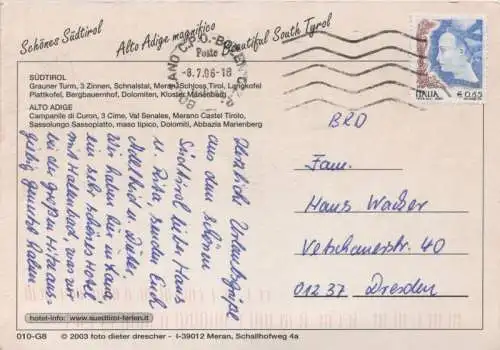 Schönes Südtirol
Alto Adige magnifico
Beautiful South Tyrol
SÜDTIROL
Grauner Turm, 3 Zinnen, Schnalstal, Meran Schloss Tirol, Langkofel
Plattkofel, Bergbauernhof, Dolomiten, Kloster Marienberg
ALTO ADIGE
Campanile di Curon, 3 Cime, Val Senales, Merano Castel Tirolo,
Sassolungo Sassopiatto, maso tipico, Dolomiti, Abbazia Marienberg
BOLZANO C.P.O.-BOZEN
Poste
-8.7.06-18
ITALIA
€ 0,65
Herzliche Urlaubsgrüße
aus dem schönen
Südtirol lieber Hans
u. Rita, senden Euch
Dieter.
Wir haben hier in Lana
ein sehr schönes Hotel
mit Hallenbad, was wir
bei der großen Hitze aus-
giebig genutzt haben.
BRD
Fam.
Hans Wacker
Vetschauerstr. 40
01237 Dresden
hotel-info: www.suedtirol-ferien.it
010-G8 © 2003 foto dieter drescher - I-39012 Meran, Schallhofweg 4a